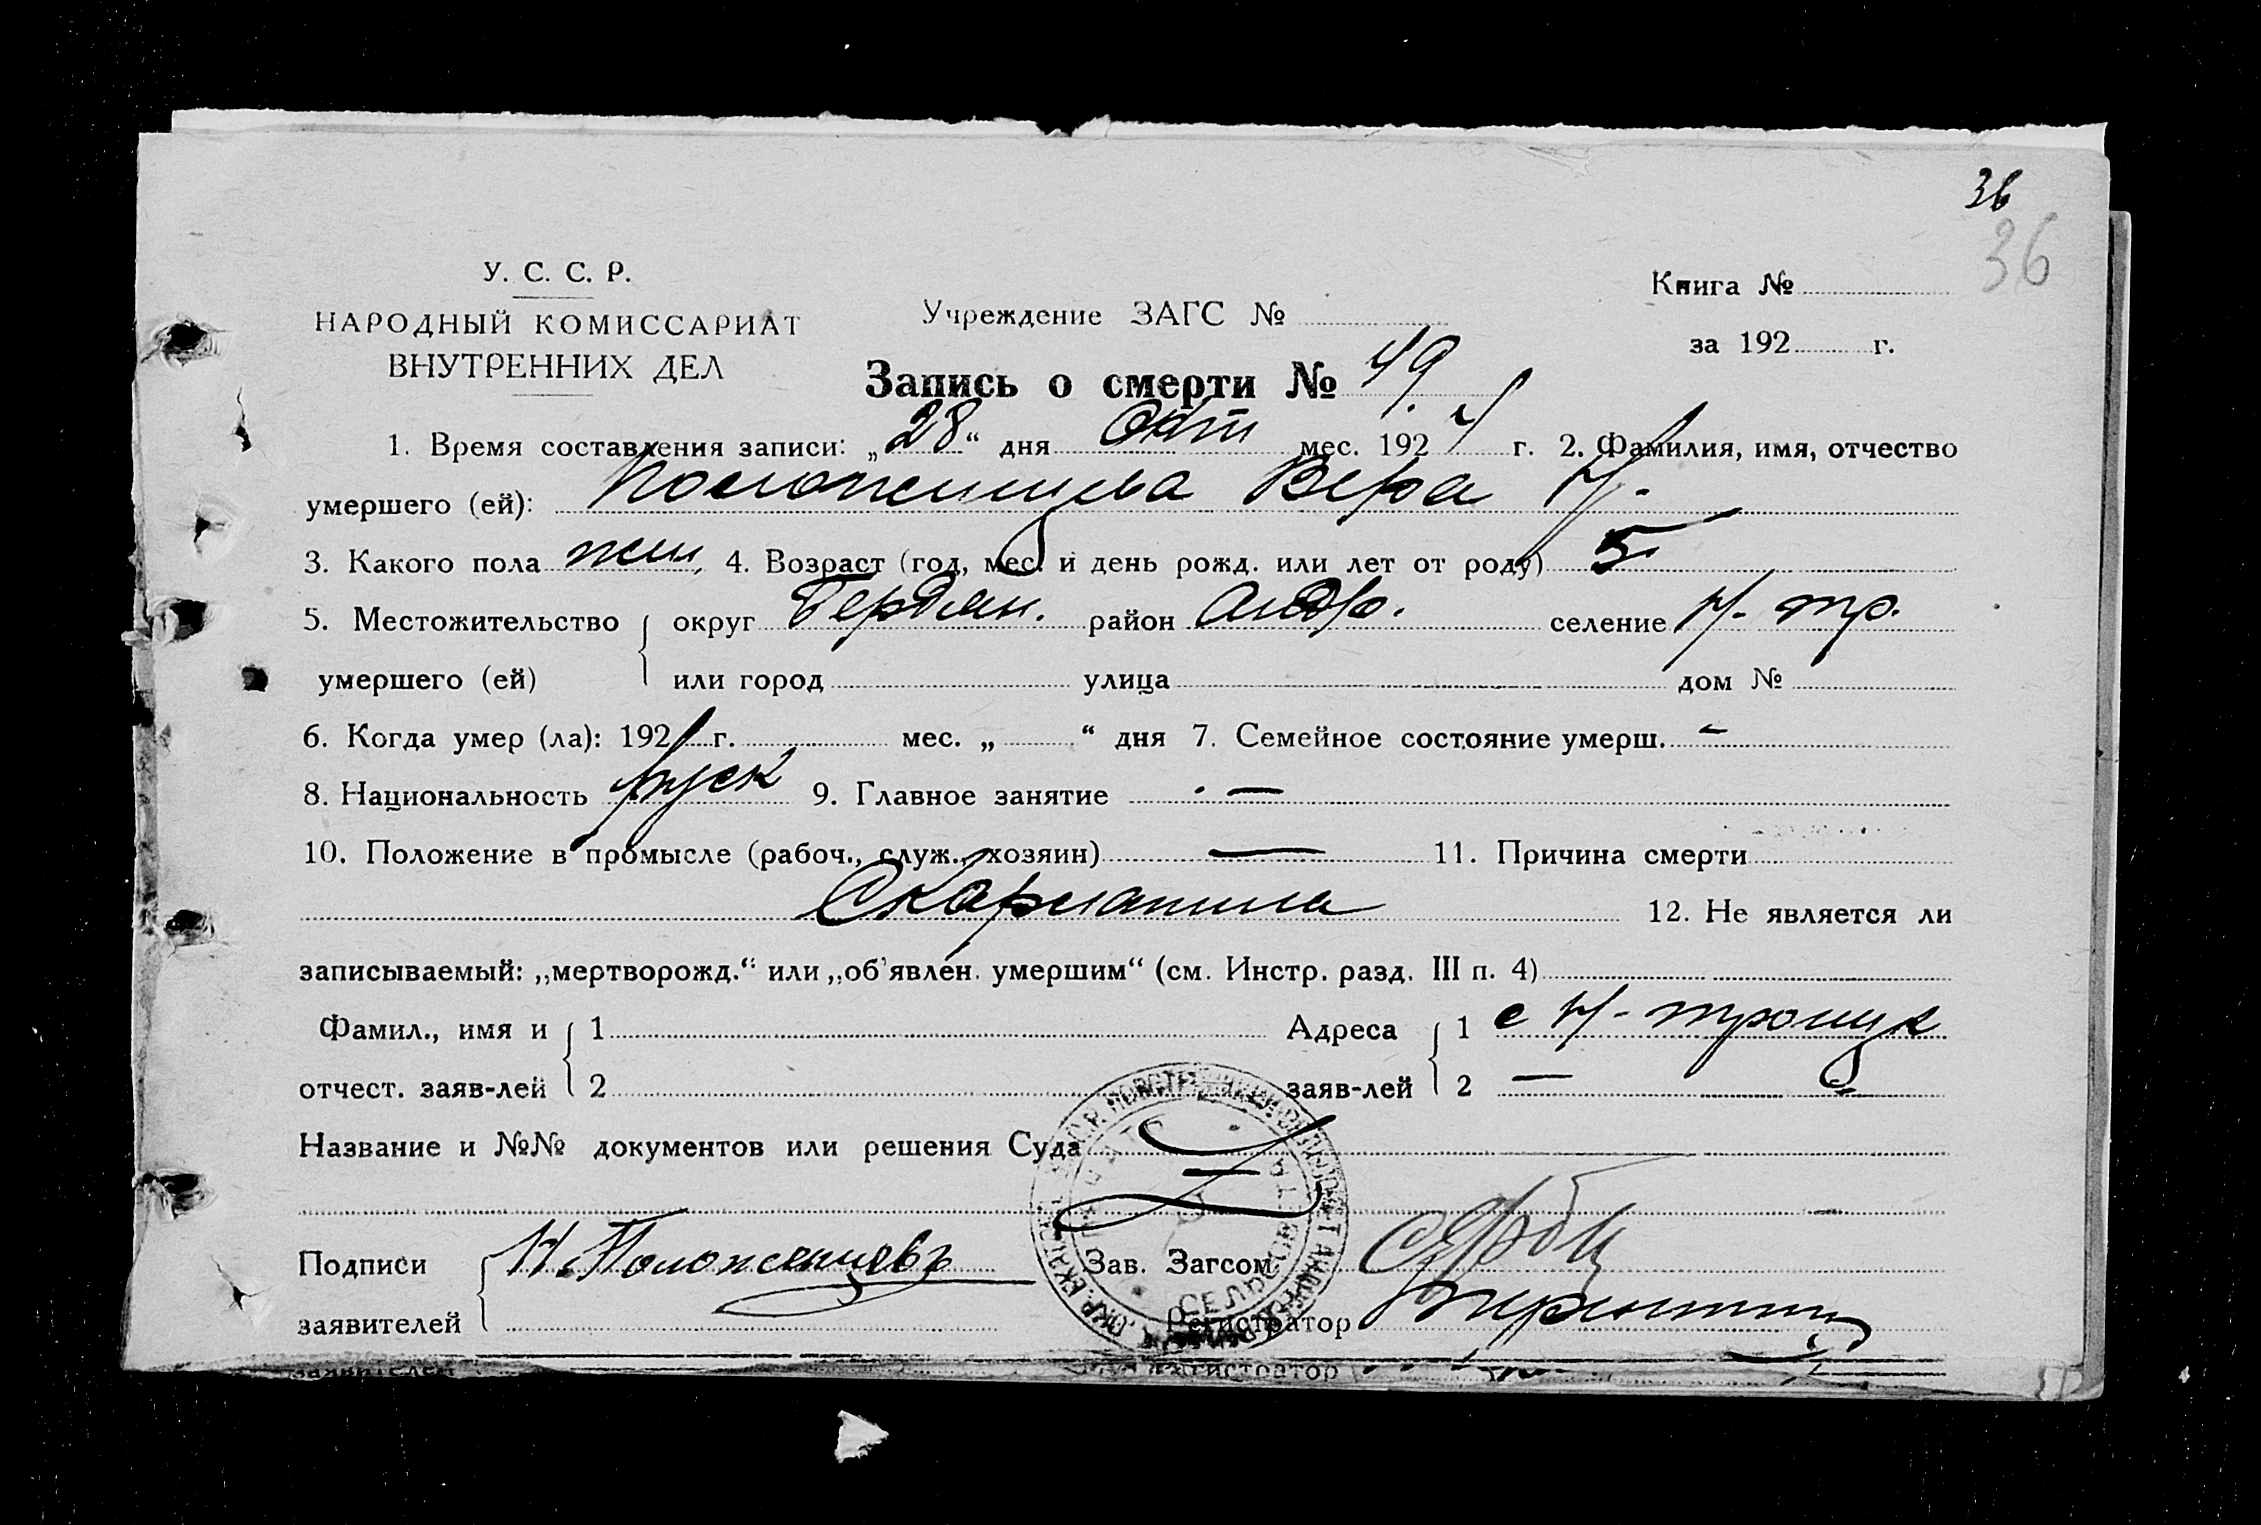 36
36
У. С. С. Р.
НАРОДНЫЙ КОМИССАРИАТ
ВНУТРЕННИХ ДЕЛ
Учреждение ЗАГС №
Книга №
за 192 г.
Запись о смерти № 49.
1. Время составления записи: „28“ дня Окт мес. 1924 г. 2. Фамилия, имя, отчество
умершего (ей): Положенцева Вера Н.
3. Какого пола жен, 4. Возраст (год, мес. и день рожд. или лет от роду) 5
5. Местожительство округ Бердян. район Андр. селение Н-тро.
умершего (ей) или город улица дом №
6. Когда умер (ла): 192 г. мес. „ “ дня 7. Семейное состояние умерш. -
8. Национальность руск 9. Главное занятие —
10. Положение в промысле (рабоч., служ., хозяин) — 11. Причина смерти
Скарлатина 12. Не является ли
записываемый: „мертворожд.“ или „об’явлен. умершим“ (см. Инстр. разд. III п. 4)
Фамил., имя и 1 Адреса 1 с Н-троицк
отчест. заяв-лей 2 заяв-лей 2 —
Название и №№ документов или решения Суда
Подписи Н. Положенцевъ Зав. Загсом
заявителей Регистратор
заявителей Регистратор
СЕЛЬСОВ